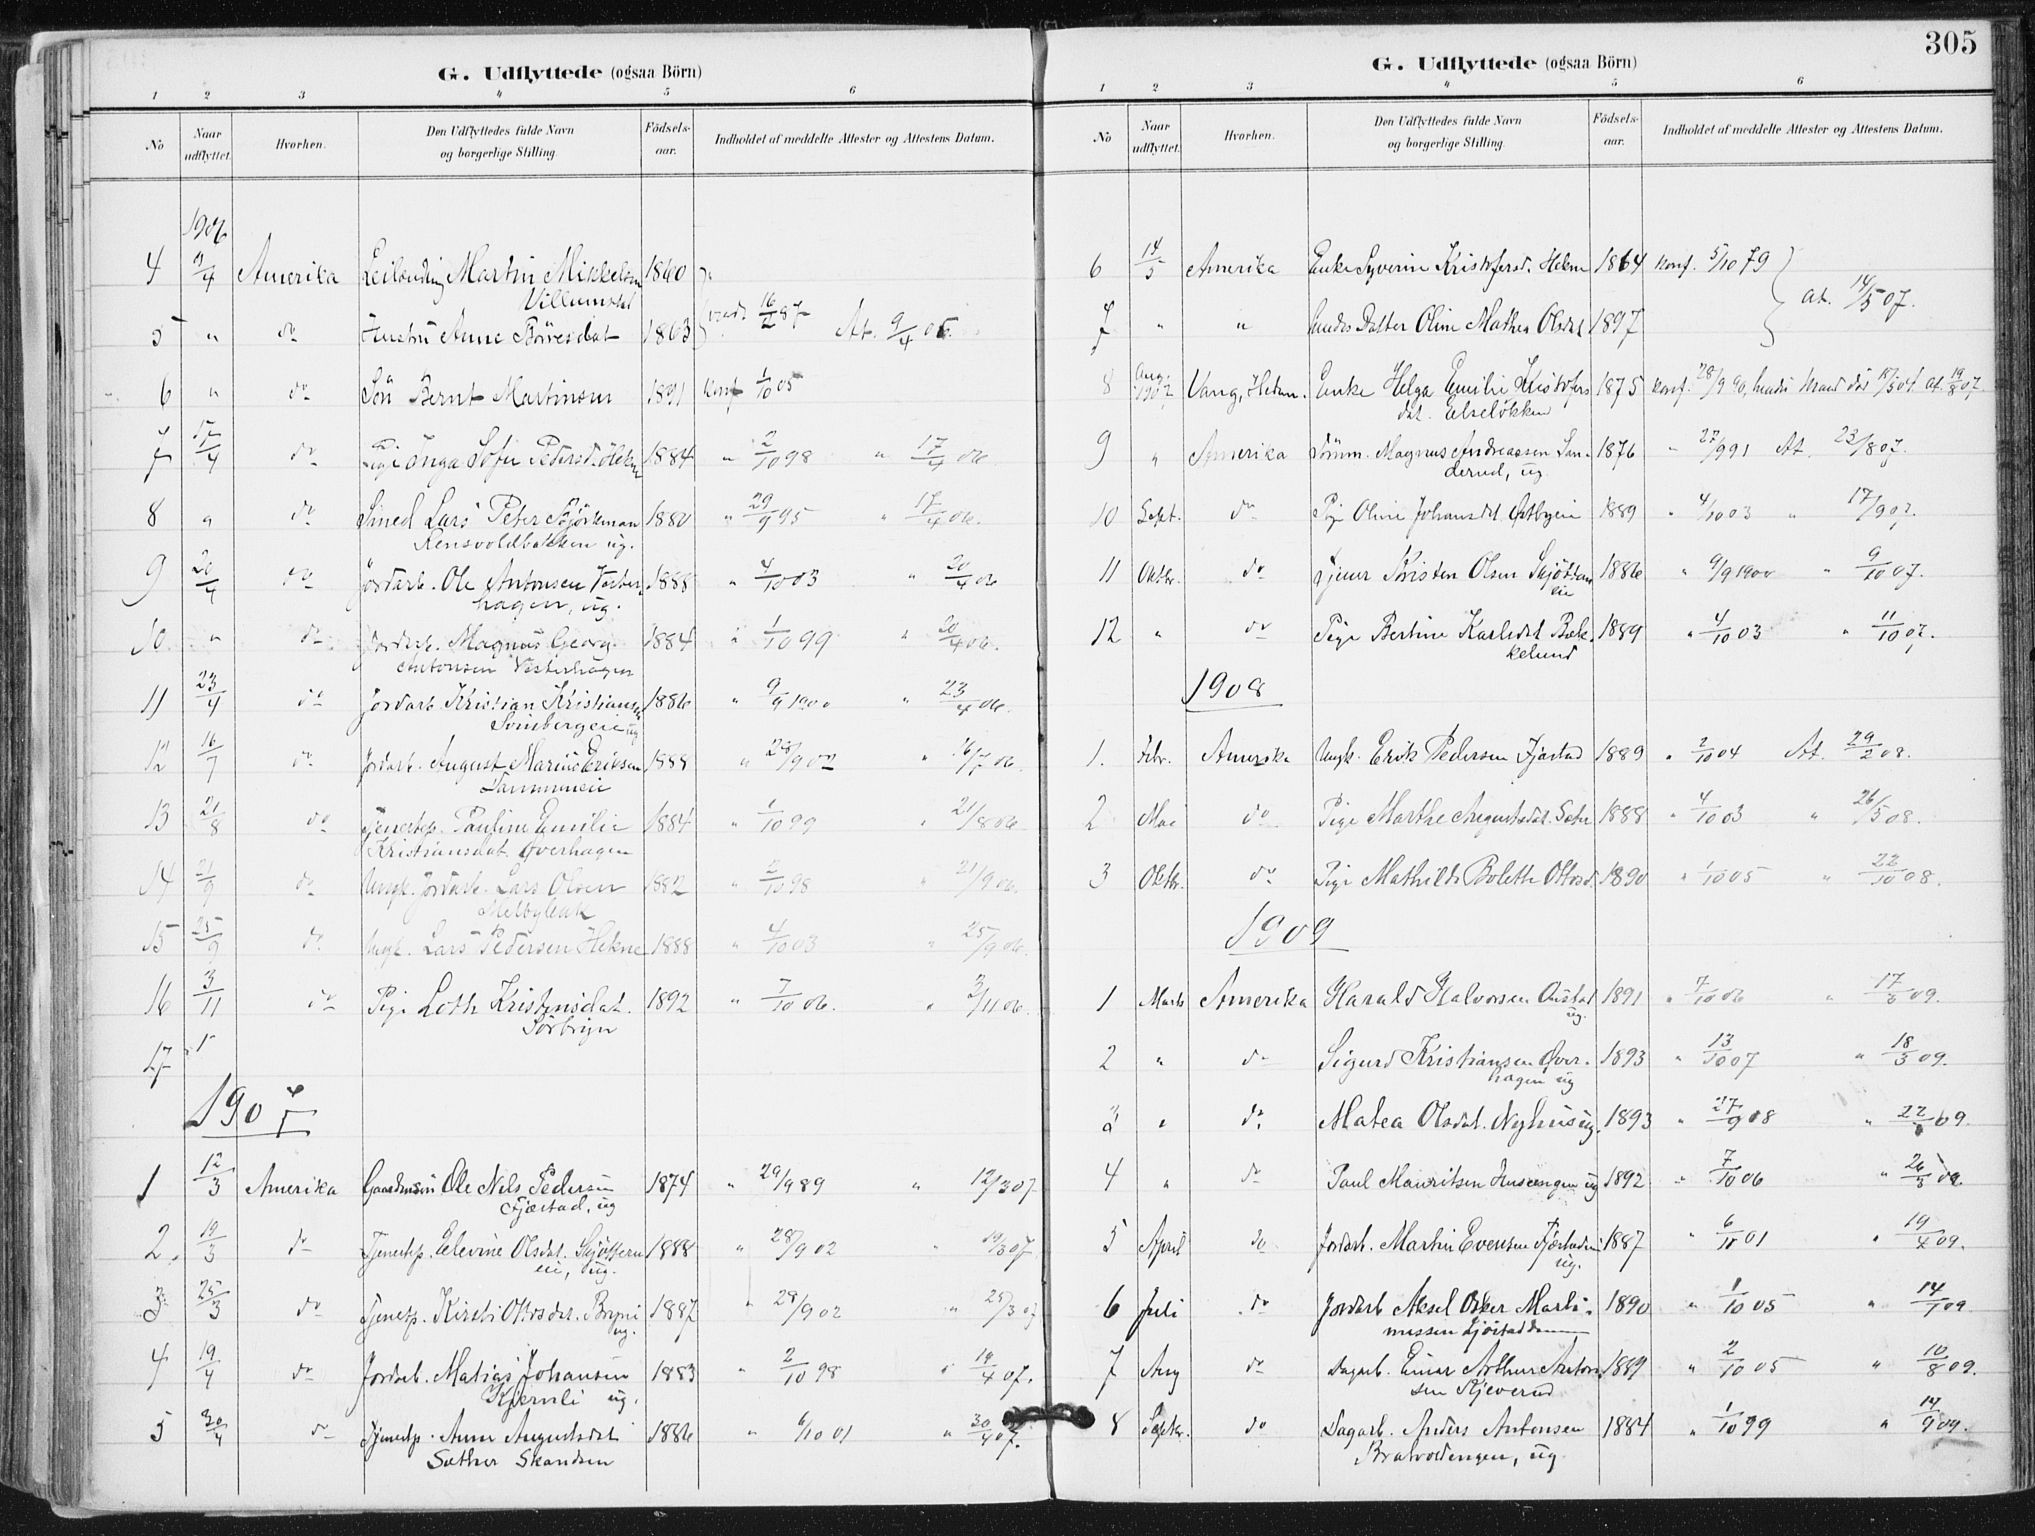 305
G. Udflyttede (ogsaa Börn)
1 2 3 4 5 6
No
Naar udflyttet.
Hvorhen.
Den Udflyttedes fulde Navn og borgerlige Stilling.
Födsels-aar.
Indholdet af meddelte Attester og Attestens Datum.
1906
4 9/4 Amerika Martin Mikkelsen 1860 "
5 " do Hustru Anne 1863 16/2 87 At. 9/4 06.
6 " do Sön Bernt Martinsen 1891 Konf 1/10 05
7 17/4 do Pige Inga Sofie Pedersd. Hekne 1884 " 2/10 98 " 17/4 06
8 " do Smed Lars Peter Björkman 1880 " 29/9 95 " 17/4 06.
ug.
9 20/4 do Jordarb. Ole Antonsen Vester- 1888 " 4/10 03 " 20/4 06
hagen, ug.
10. " do Jordarb. Magnus Georg 1884 " 1/10 99 " 20/4 06.
Antonsen Vesterhagen
11 23/4 do Jordarb Kristian Kristiansen 1886 " 9/9 1900 " 23/4 06.
ug
12 16/7 do Jordarb. August Marius Eriksen 1888 " 28/9 02 " 16/7 06.
13 21/8 do Tjenestep. Pauline Emilie 1884 " 1/10 99 " 21/8 06
Kristiansdat. Överhagen
14 21/9 do Ungk. Jordarb. Lars Olsen 1882 " 2/10 98 " 21/9 06.
15 25/9 do Ungk. Lars Pedersen Hekne 1888 " 4/10 03 " 25/9 06.
16 3/11 do Pige Loth Kristensdat. 1892 " 7/10 06. " 3/11 06.
17
1907
1 12/3 Amerika Ole Nels Pedersen 1874 " 29/9 89 " 12/3 07
Fjæstad, ug
2. 19/3 do Tjenestp. Elevine Olsdat. 1888 " 28/9 02 " 19/3 07
ug.
3 25/3 do Tjenestp. Kirsti Ottosdat. 1887 " 28/9 02 " 25/3 07
ug.
4 19/4 do Jordarb. Matias Johansen 1883 " 2/10 98 " 19/4 07.
ug.
5 30/4 do Tjenestp. Anne Augustsdat 1886 " 6/10 01 " 30/4 07.
G. Udflyttede (ogsaa Börn)
1 2 3 4 5 6
No
Naar udflyttet.
Hvorhen.
Den Udflyttedes fulde Navn og borgerlige Stilling.
Födsels-aar.
Indholdet af meddelte Attester og Attestens Datum.
6 14/5 Amerika Enke Syverine Kristofersd. Hekne 1864 Konf. 5/10 79 At. 14/5 07.
7 " " hendes Datter Oline Mathea Olsdat 1897
8 Aug. 1907 Vang, Hedm. Enke Helga Emilie Kristofers 1875 Konf. 28/9 90, hendes Mand död At. 19/8 07
dat. Elselökken
9 " Amerika Tömm. Magnus Andreassen San- 1876 " 27/9 91 At. 23/8 07.
derud, ug
10 Sept. do Pige Oline Johansdat Östbyeie 1889 " 4/10 03 " 17/9 07.
11 Oktbr. do Kristen Olsen 1886 " 9/9 1900 " 9/10 07.
12 " do Pige Bertine Karlsdat Bæk- 1889 " 4/10 03 " 11/10 07.
kelund
1908
1. Febr. Amerika Ungk. Erik Pedersen Fjæstad 1889 " 2/10 04 At. 29/2 08.
2 Mai do Pige Marthe Augustsdat. Sæter 1888 " 4/10 03 " 26/5 08.
3 Oktbr. do Pige Mathilde Bolette Ottosd. 1890 " 1/10 05 " 22/10 08.
1909
1 Marts Amerika Harald Halvorsen 1891 " 7/10 06 " 17/3 09.
ug.
2 " do Sigurd Kristiansen Över- 1893 " 13/10 07 " 18/3 09.
hagen ug
3 " do. Matea Olsdat. Nyhus ug. 1893 " 27/9 08 " 22/3 09.
4 " do Paul Mauritsen ug 1892 " 7/10 06 " 26/3 09.
5 April do Jordarb. Martin Evensen 1887 " 6/10 01 " 19/4 09.
ug.
6 Juli do Jordarb Aksel Oskar Marti- 1890 " 1/10 05 " 14/7 09
7 Aug do Dagarb. Einar Arthur Anton- 1889 " 2/10 05 " 10/8 09.
sen Kjeverud
8 Septbr. do Dagarb. Anders Antonsen 1884 " 1/10 99 " 14/9 09.
Bratvoldengen, ug